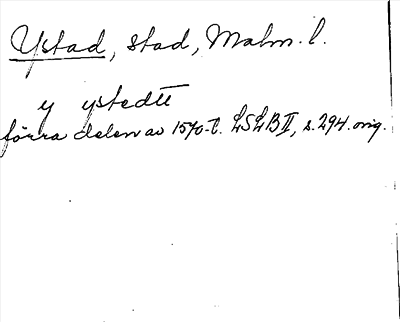 Ystad, stad, Malm. l.
y ystedt
förra delen av 1570-t. LSLB II, s. 294. orig.